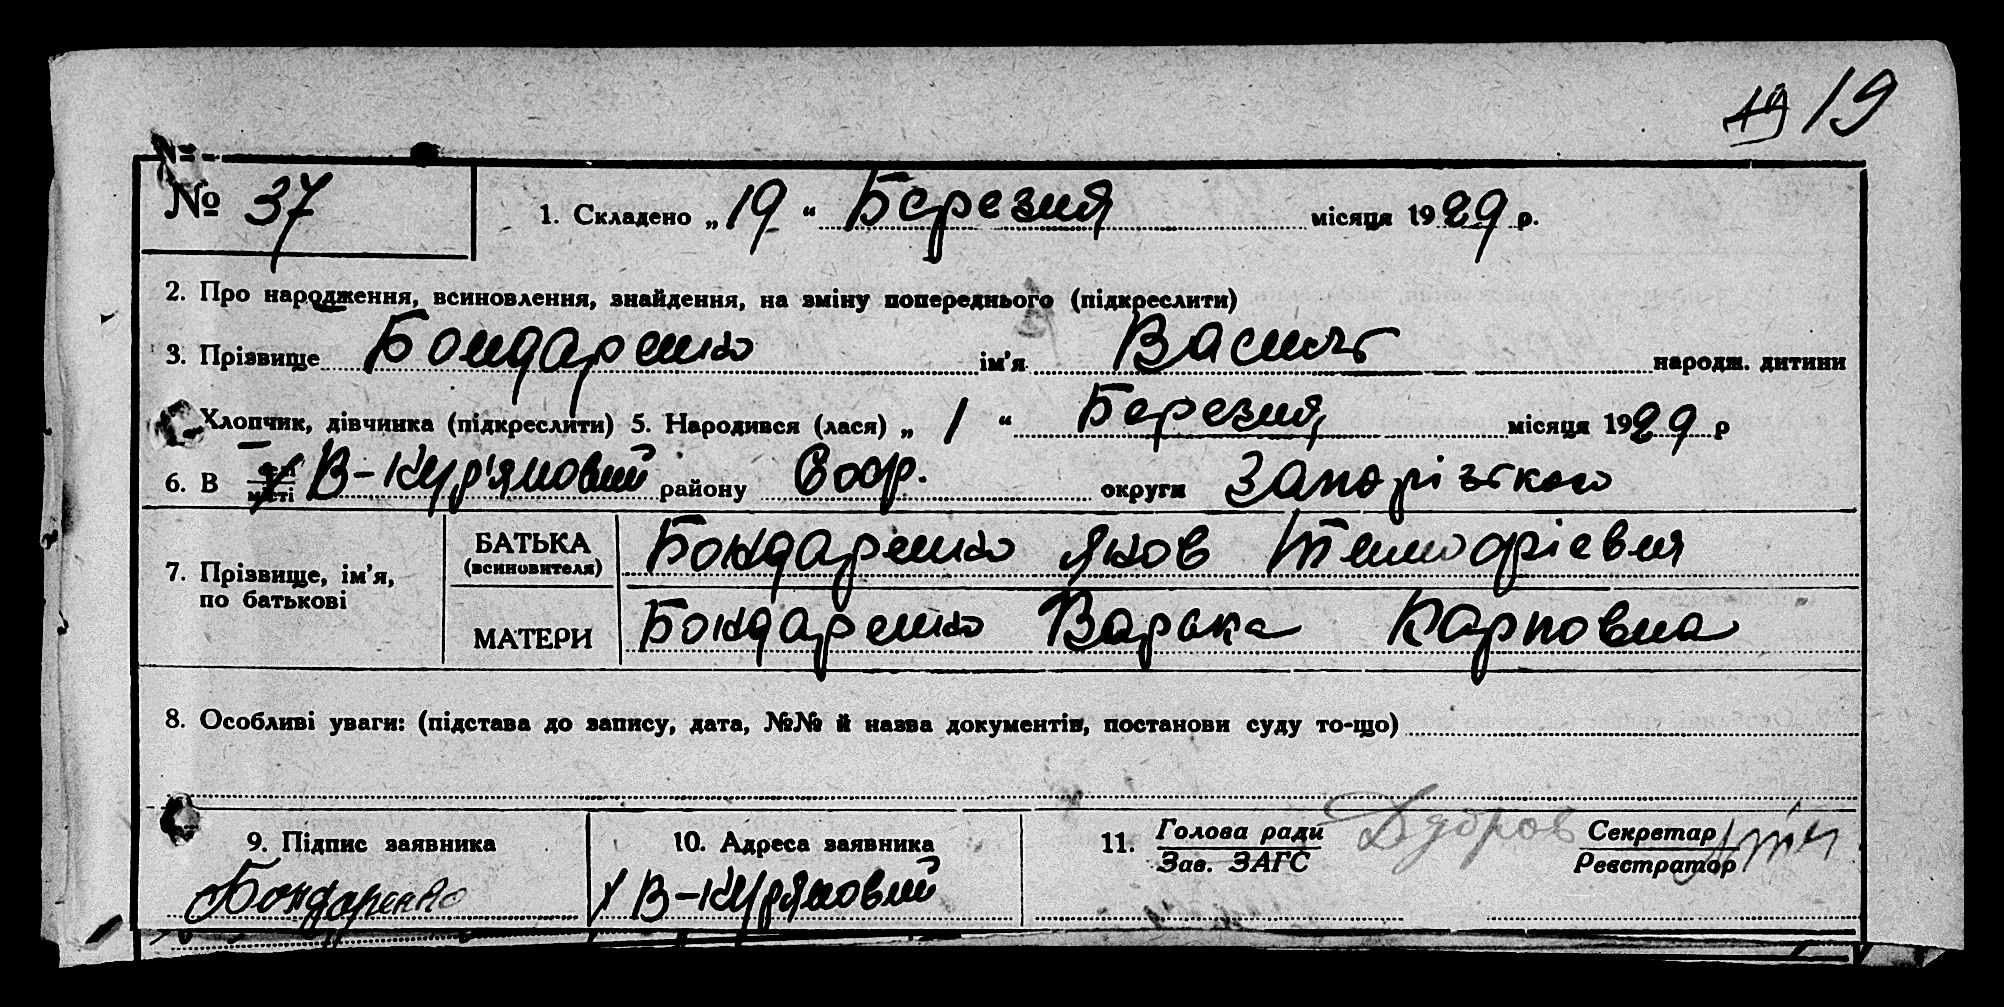 19 19
№
№ 37 1. Складено „ 19 “ Березня місяця 1929 р.
2. Про народження, всиновлення, знайдення, на зміну попереднього (підкреслити)
3. Прізвище Бондаренко ім'я Василь народж. дитини
Хлопчик, дівчинка (підкреслити) 5. Народився (лася) „ 1 “ Березня місяця 1929 р
6. В місті х В-Кур'яновий району Соф. округи Запорізького
7. Прізвище, ім'я, по батькові
БАТЬКА (всиновителя) Бондаренко Яков Тимофієвич
МАТЕРИ Бондаренко Варька Карповна
8. Особливі уваги: (підстава до запису, дата, №№ й назва документів, постанови суду то-що)
9. Підпис заявника 10. Адреса заявника 11. Голова ради Секретар
Зав. ЗАГС Реєстратор
Бондаренко х В-Кур'яновий